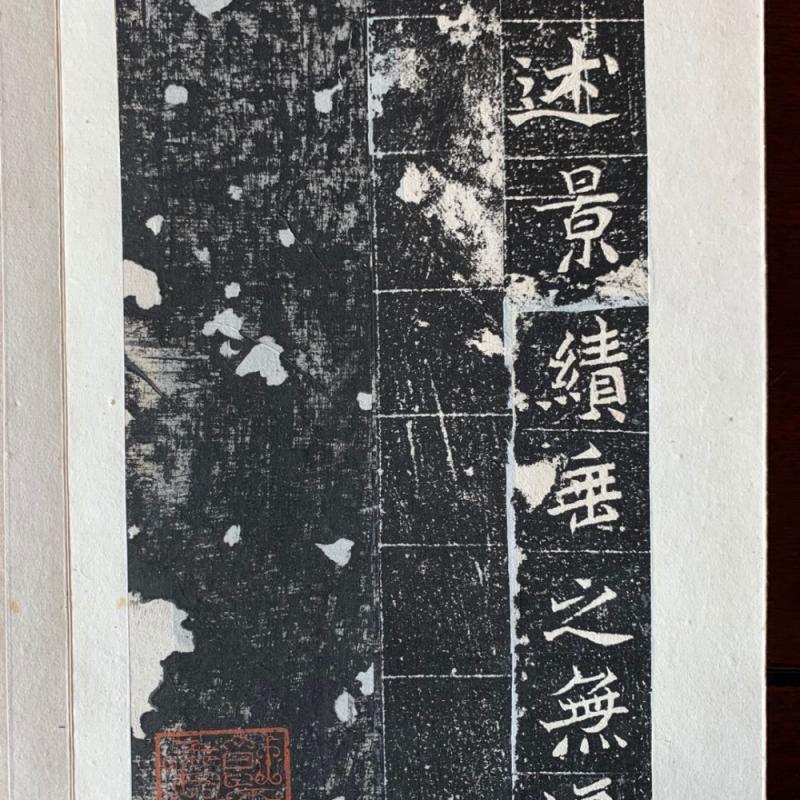 述景績垂之無